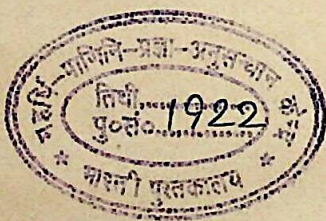 महर्षि-पाणिनि-प्रज्ञा-अनुसन्धान केन्द्र
तिथी............
पु०सं०....1922....
* भारती पुस्तकालय *